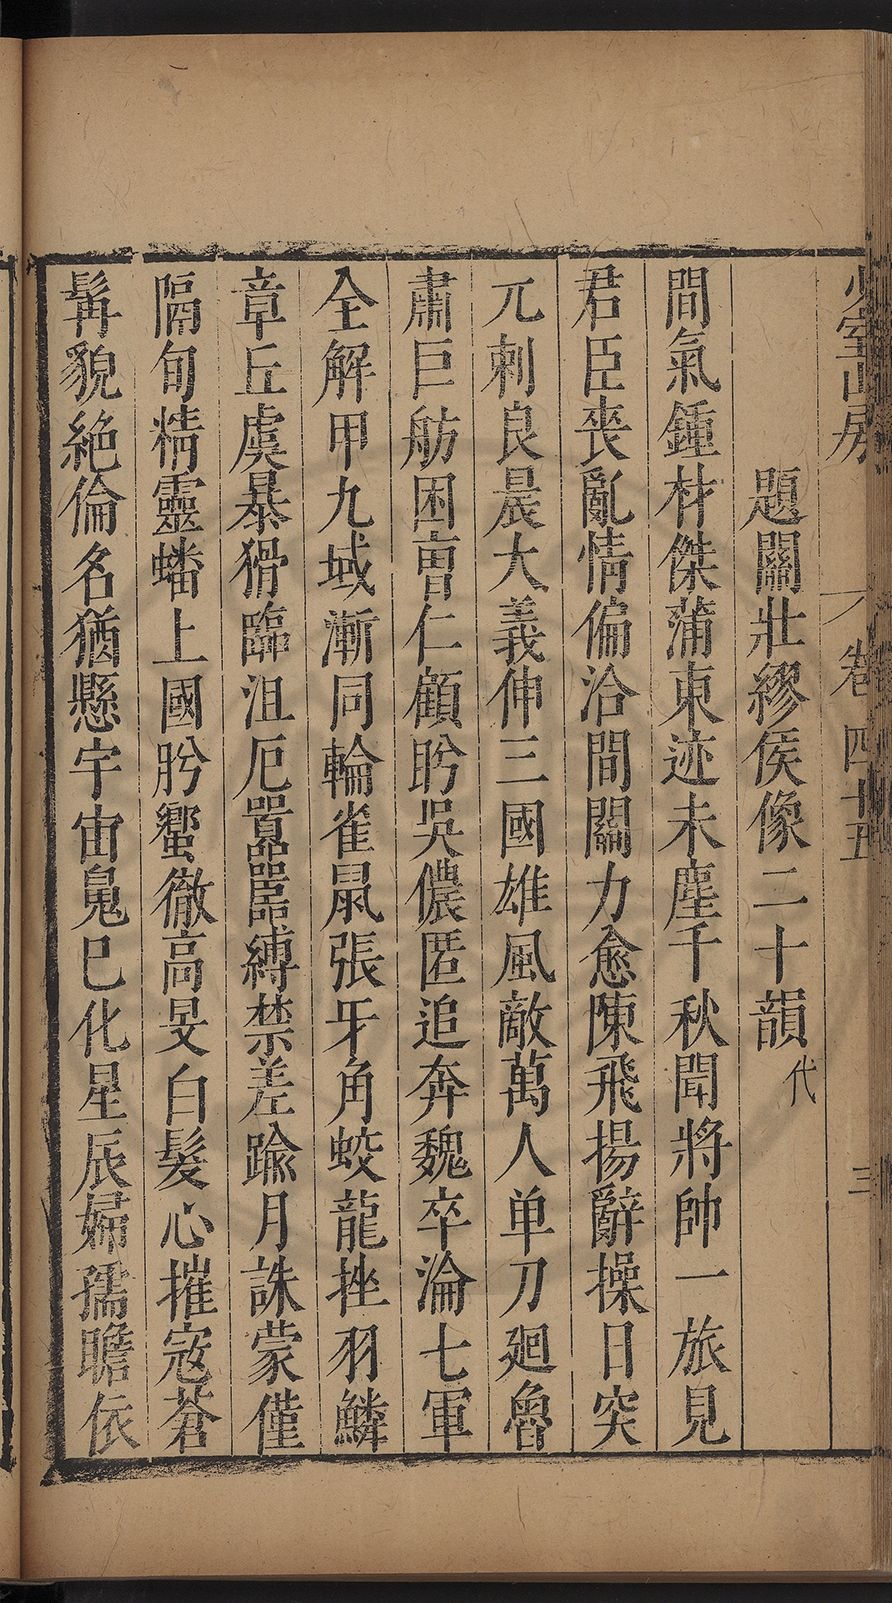 少室山房 卷四十五 三
題關壯繆侯像二十韻代
間氣鍾材傑蒲東迹未塵千秋聞將帥一旅見
君臣喪亂情偏洽間關力愈陳飛揚辭操日突
兀刺良晨大義伸三國雄風敵萬人单刀廻魯
肅巨舫困曹仁顧盻吳儂匿追奔魏卒淪七軍
全解甲九域漸同輪雀鼠張牙角蛟龍挫羽鱗
章丘虞暴猾臨沮厄嚚嚚縛禁差踰月誅蒙僅
隔旬精靈蟠上國肸蠁徹高旻白髮心摧寇蒼
髯貌絶倫名猶懸宇宙鬼巳化星辰婦孺瞻依